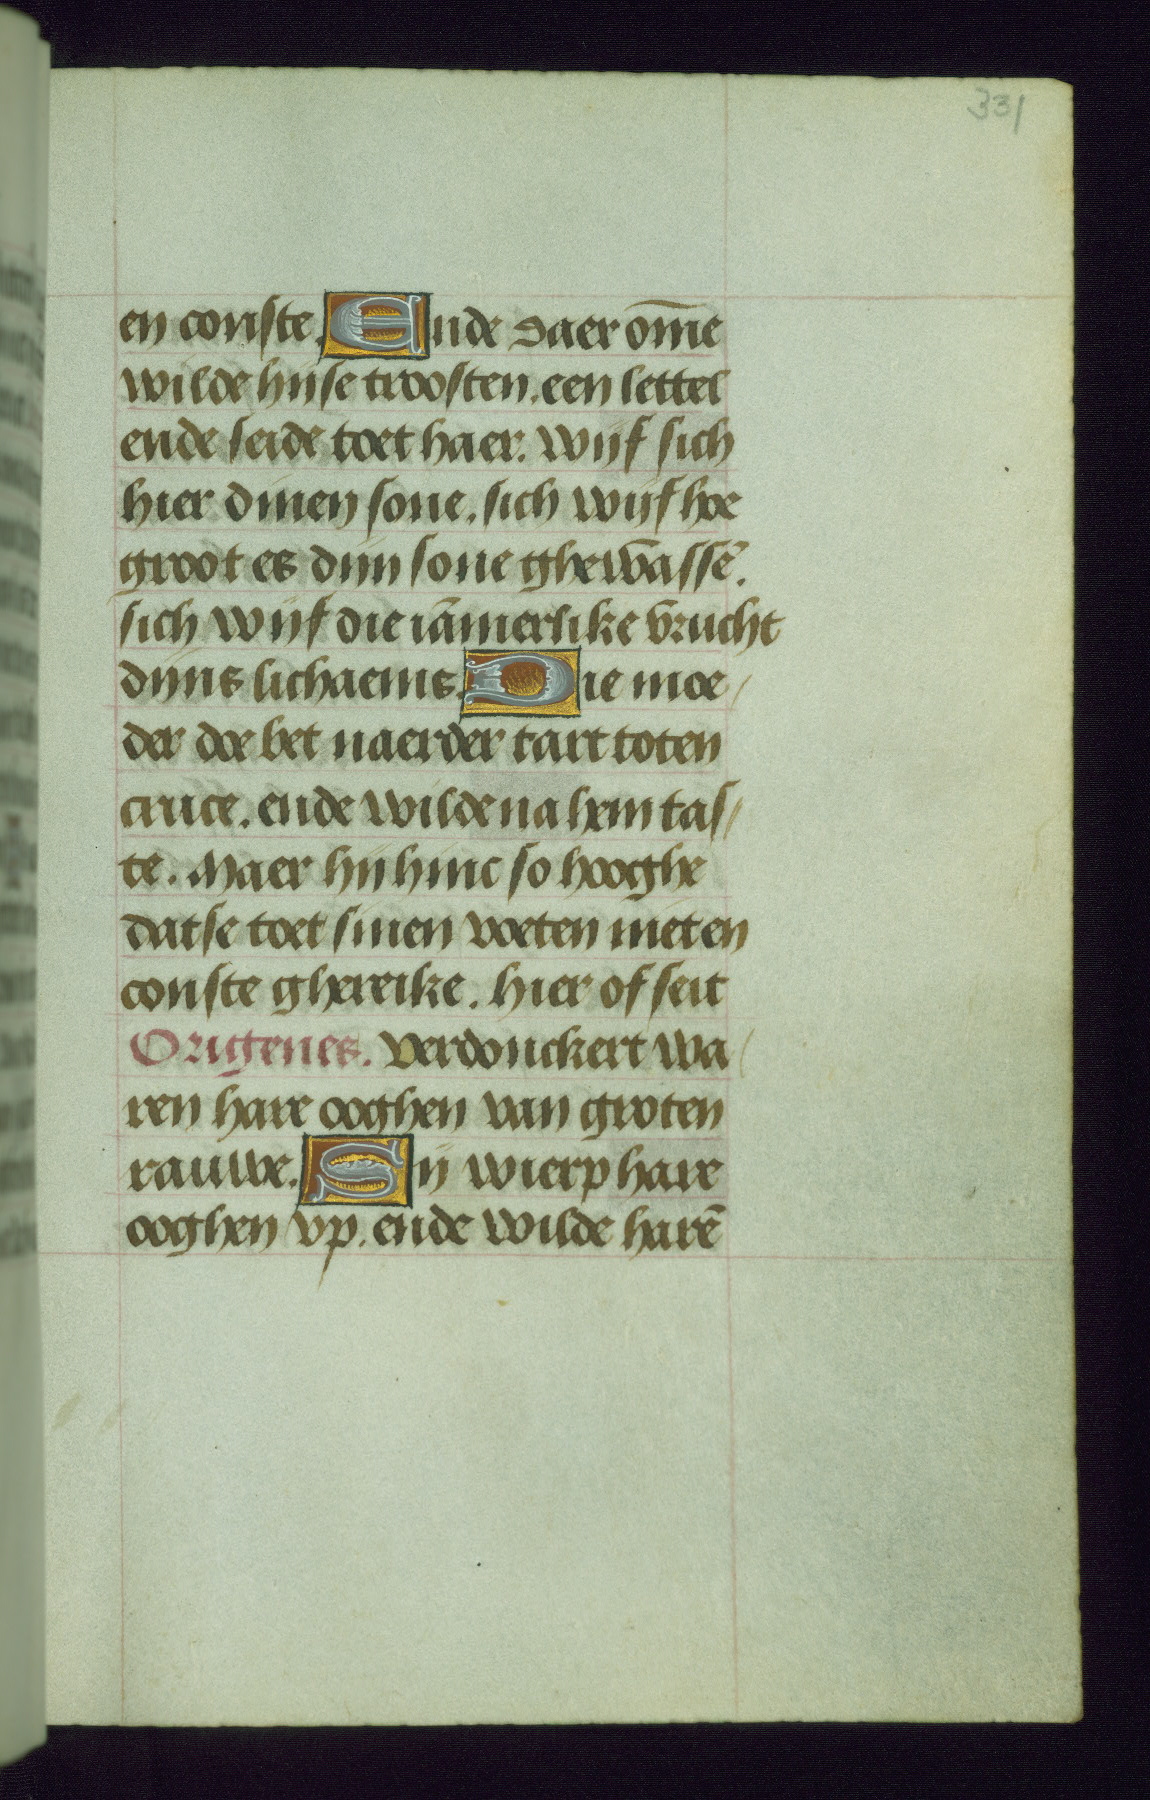 331
en conste. Ende daer om̄e
wilde hijse troosten. een lettel
ende seide toet haer. Wijf sich
hier dinen sone. sich wijf hoe
groot es dijn sone ghewassē.
sich wijf die iāmerlike vrucht
dijns lichaems. Die moe/
der doe bet naerder tart toten
cruce. ende wilde na hem tas/
te. Maer hij hinc so hooghe
datse toet sinen voeten niet en
conste ghereike. hier of seit
Origenes. Verdonckert wa/
ren hare ooghen van groten
rauwe. Sij wierp hare
ooghen vp. ende wilde harē